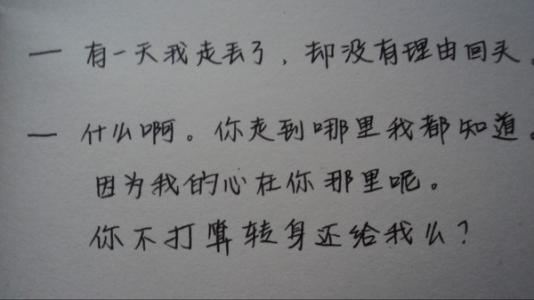 — 有一天我走丢了，却没有理由回头。
— 什么啊。你走到哪里我都知道。
因为我的心在你那里呢。
你不打算转身还给我么？